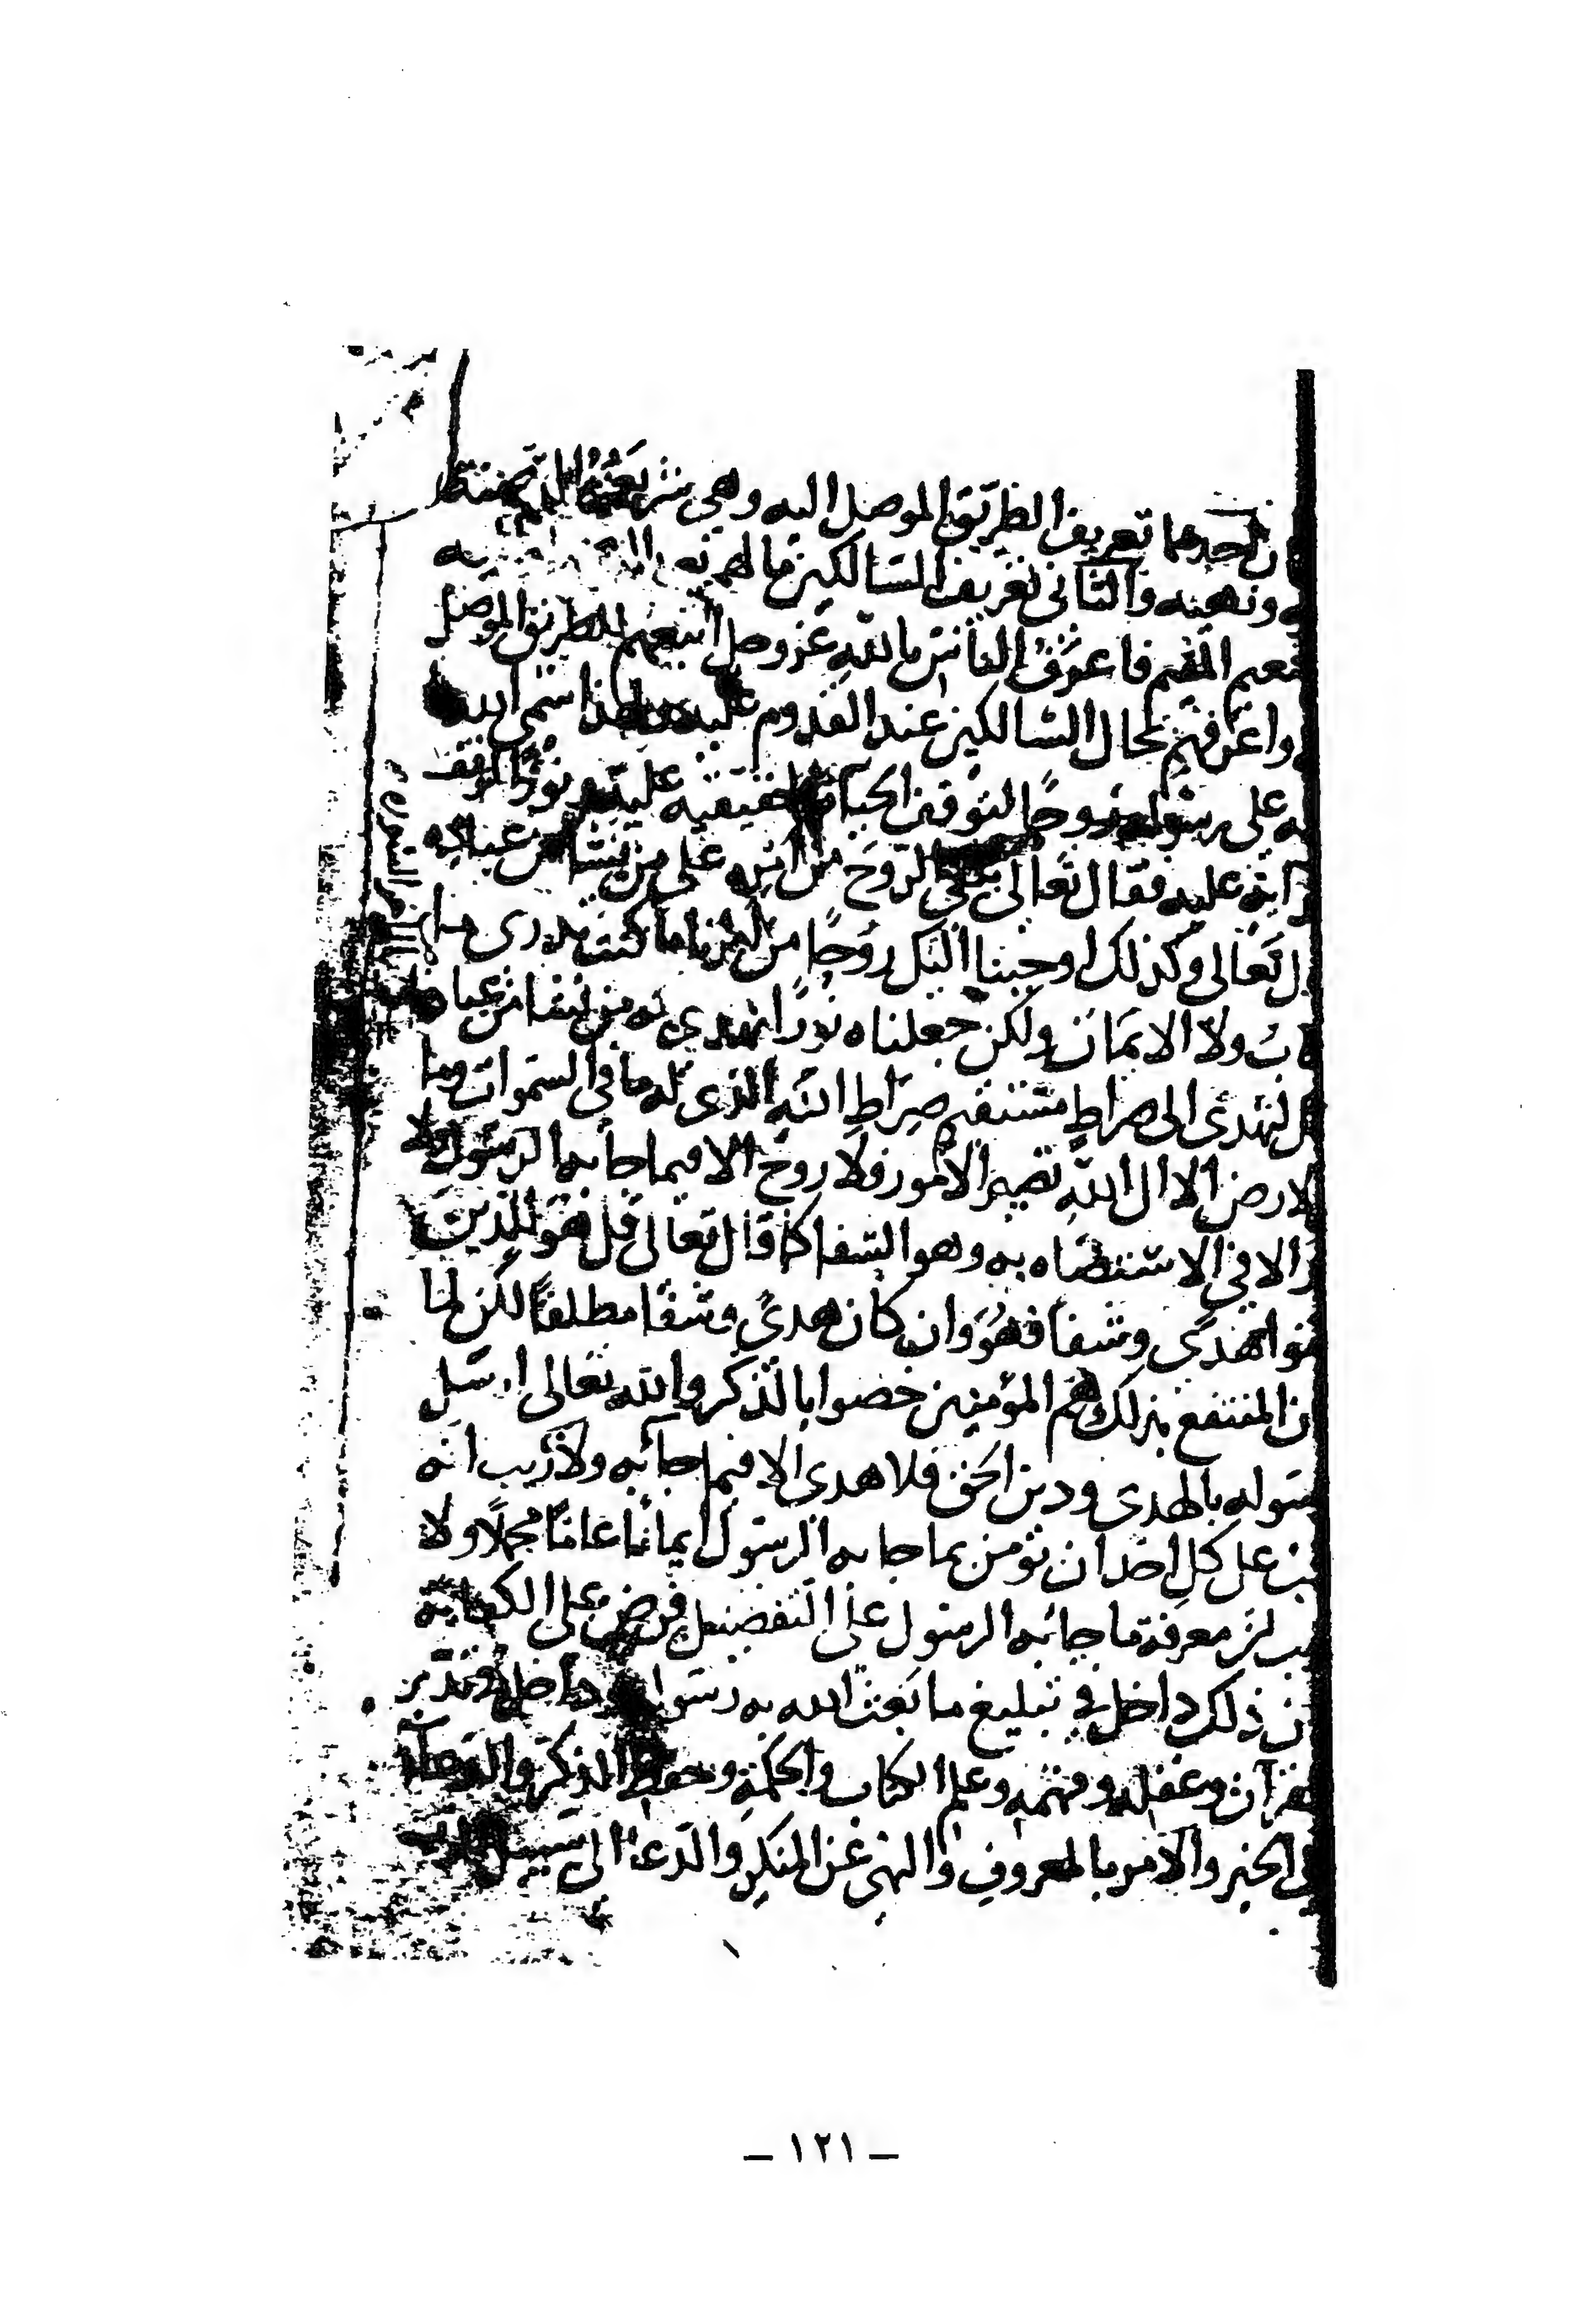 احدهما تعريف الطريق الموصل اليه وهي شريعته المتضمنة
ونهيه والثاني تعريف السالكين ما لهم
المقيم فاعرف الناس بالله عز وجل اتبعهم للطريق الموصل
واعرفهم بحال السالكين عند القدوم عليه ولهذا سمى الله
على رسوله روحا لتوقف الحياة الحقيقية عليه ونورا لتوقف
عليه فقال تعالى يلقي الروح من امره على من يشا من عباده
تعالى وكذلك اوحينا اليك روحا من امرنا ما كنت تدري ما
ولا الايمان ولكن جعلناه نورا نهدي به من نشا من عبادنا
لتهدى الى صراط مستقيم صراط الله الذى له ما في السموات وما
الارض الا الى الله تصير الامور فلا روح الا فيما جا به الرسول ولا
الا في الاستضاه به وهو الشفا كما قال تعالى قل هو للذين
هدى وشفا فهو وان كان هدى وشفا مطلقا لكن لما
المنتفع بذلك هم المؤمنين خصوا بالذكر والله تعالى ارسل
بالهدى ودين الحق فلا هدى الا فيما جا به ولا ريب انه
على كل احد ان يؤمن بما جا به الرسول ايمانا عاما مجملا ولا
معرفة ما جا به الرسول على التفصيل فرض على الكفاية
ذلك داخل في تبليغ ما بعث الله به رسوله وداخل في تدبر
وعقله وفهمه وعلم الكتاب والحكمة وحفظ الذكر والدعا
الخير والامر بالمعروف والنهى عن المنكر والدعا الى سبيل
– ١٢١ –